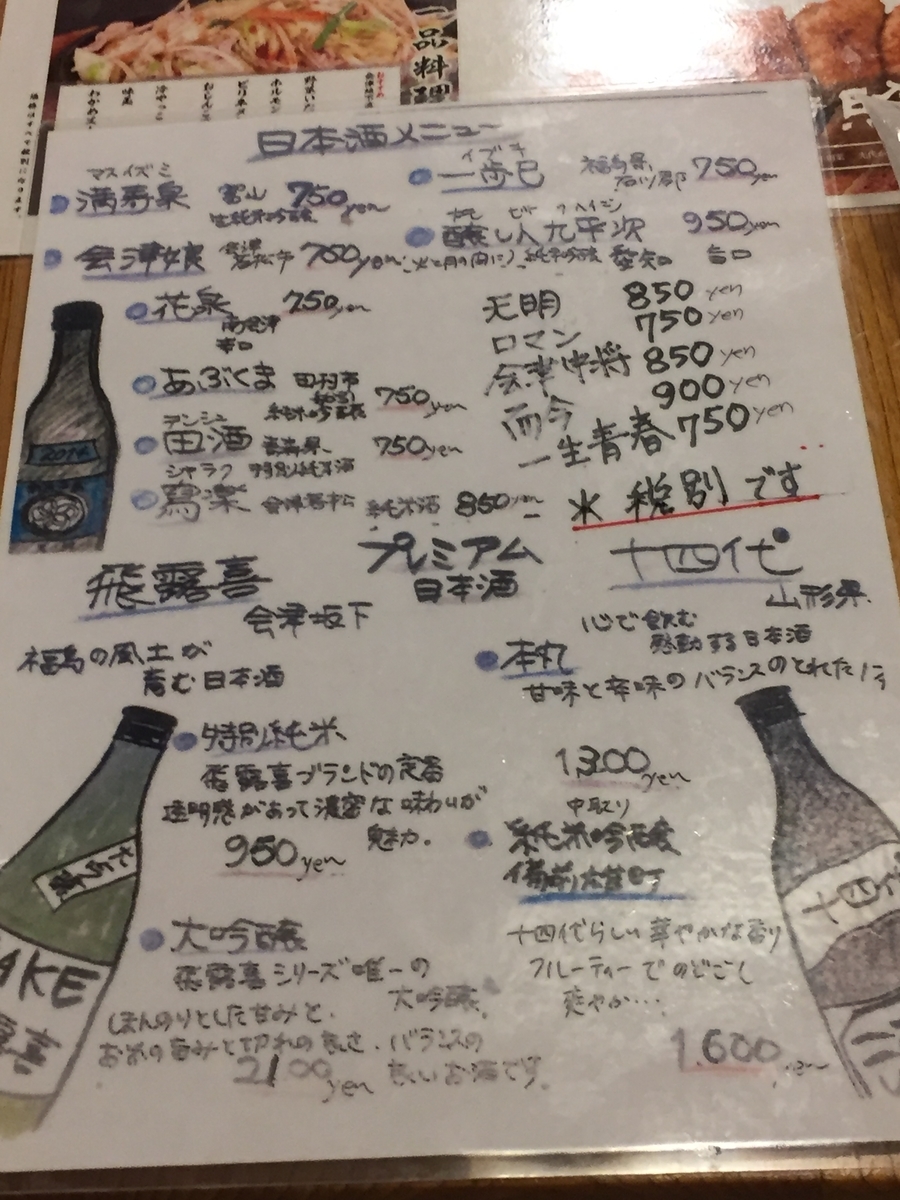 一品料理
日本酒メニュー
マスイズミ
満寿泉 富山 750yen
生純米吟醸
会津娘 会津若松市 750yen
花泉 750yen
南会津
辛口
あぶくま 田村市
純米吟醸 750yen
デンシュ
田酒 青森県、 750yen
特別純米酒
シャラク
寫楽 会津若松 純米酒 850yen
イブキ
一歩己 福島県 石川郡 750yen
カモシビトクヘイジ
醸し人九平次 950yen
(火と月の間に) 純米吟醸 愛知 辛口
天明 850yen
ロマン 750yen
会津中将 850yen
而今 900yen
一生青春 750yen
※ 税別です
2014
プレミアム
日本酒
飛露喜
会津坂下
福島の風土が
育む日本酒
特別純米
飛露喜ブランドの定番
透明感があって濃密な味わいが
魅力。
950yen
大吟醸
飛露喜シリーズ唯一の
大吟醸。
ほんのりとした甘みと、
お米の旨みと切れの良さ、バランスの
良いお酒です。
2100yen
十四代
山形県
心で飲む
感動する日本酒
本丸
甘味と辛味のバランスのとれた
1,300yen
中取り
純米吟醸
備前雄町
十四代らしい華やかな香り
フルーティーでのどごし
爽やか…
1,600yen
大吟醸
AKE
露喜
十四代